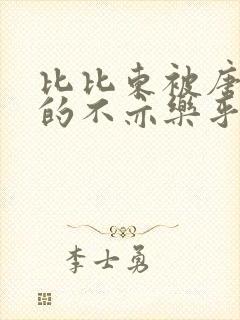 比比东被唐
的不亦乐乎
李士勇